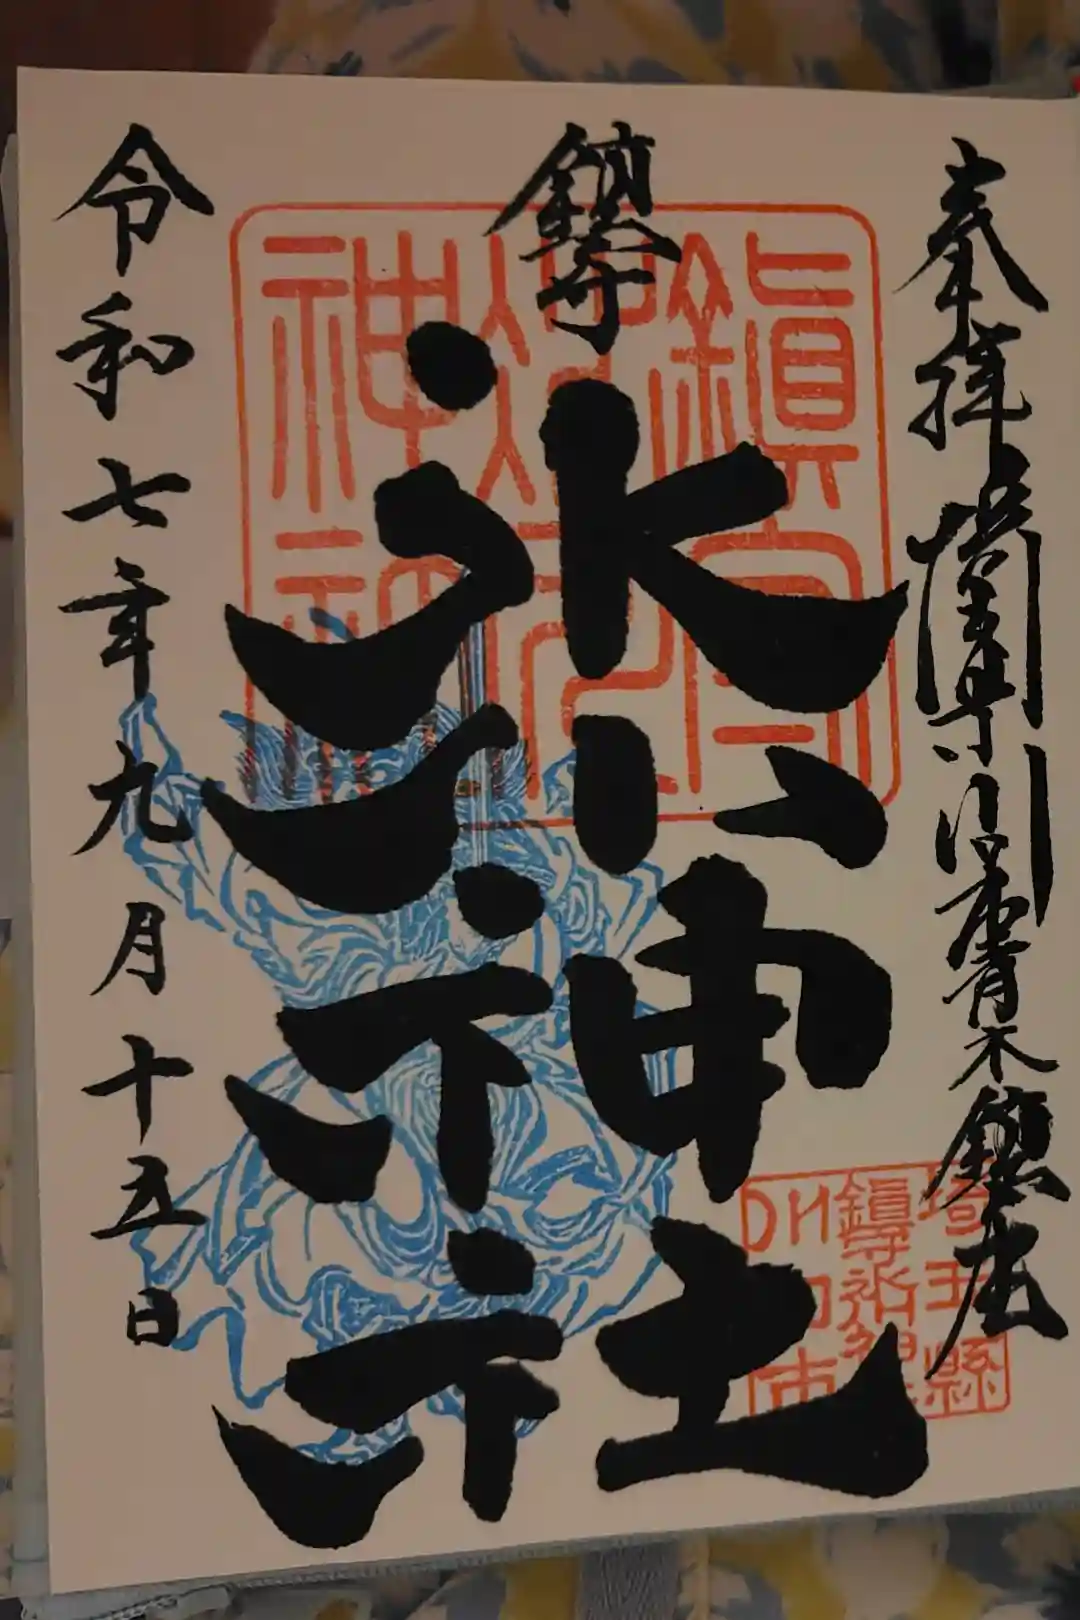 奉拝 埼玉県川口市青木鎮座
鎮守
氷川神社
令和七年九月十五日
鎮守氷川神社印
埼玉縣
鎮守氷川神社
川口市